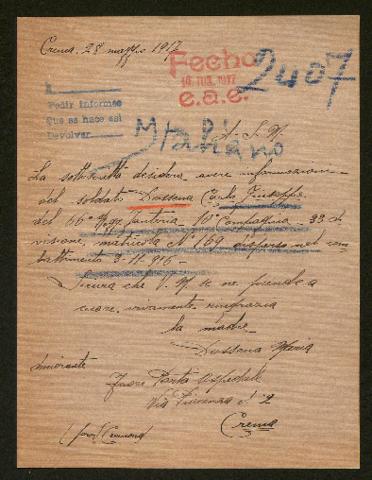 Crema. 28 maggio 1917
Fecho
16 JUN. 1917
e.a.e.
2407
A
Pedir informes
Que se hace así
Devolver
Italiano
A. S. M.
La sottoscritta desidera avere informazioni
del soldato Dossena Carlo Giuseppe
del 66º Regg. Fanteria 10ª Compagnia - 33 di
visione, matricola Nº 169 disperso nel com
battimento 3-11-916 -
Sicura che V. M. se ne prenda a
cuore, vivamente ringrazia
la madre
Dossena Maria
Fuori Porta Ospedale
Via 2
Crema